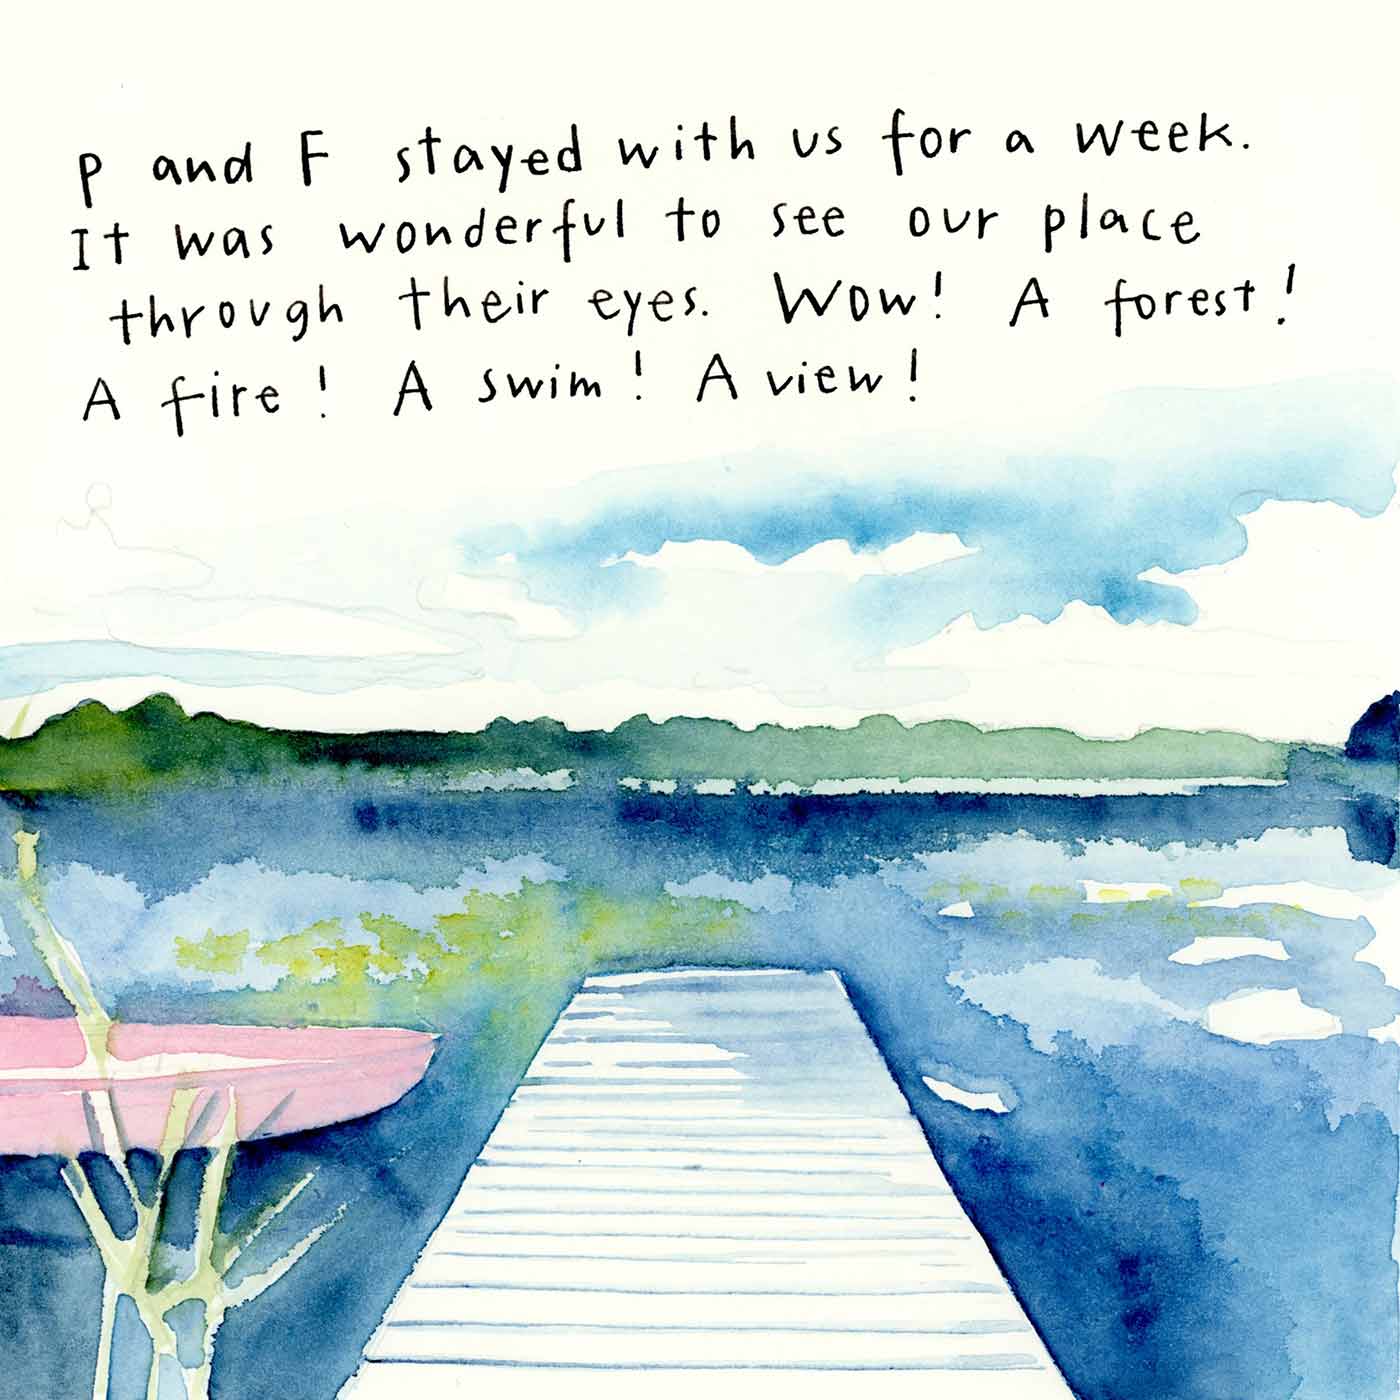 P and F stayed with us for a week.
It was wonderful to see our place
through their eyes. Wow! A forest!
A fire! A swim! A view!